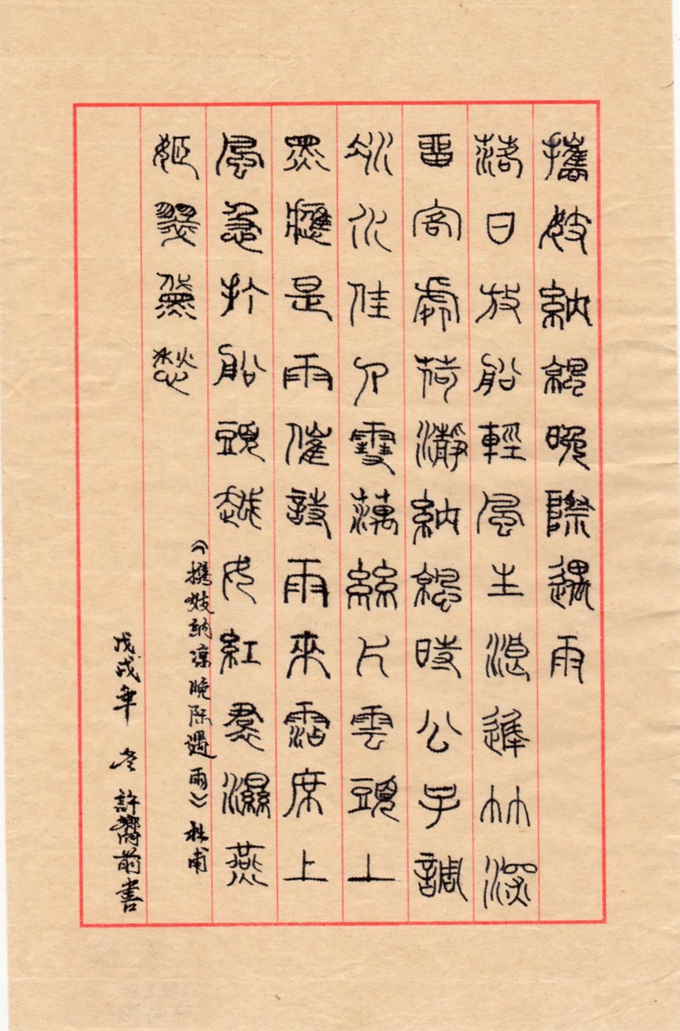 攜妓納涼晚際遇雨
落日放船輕風生浪遲竹深
畱客處荷瀞納涼時公子調
冰水佳人雪藕絲片雲頭上
黑應是雨催詩雨來霑席上
風急打船頭越女紅裙濕燕
姬翠黛愁
《携妓納凉晚际遇雨》杜甫
戊戌年 冬 許嚮前書